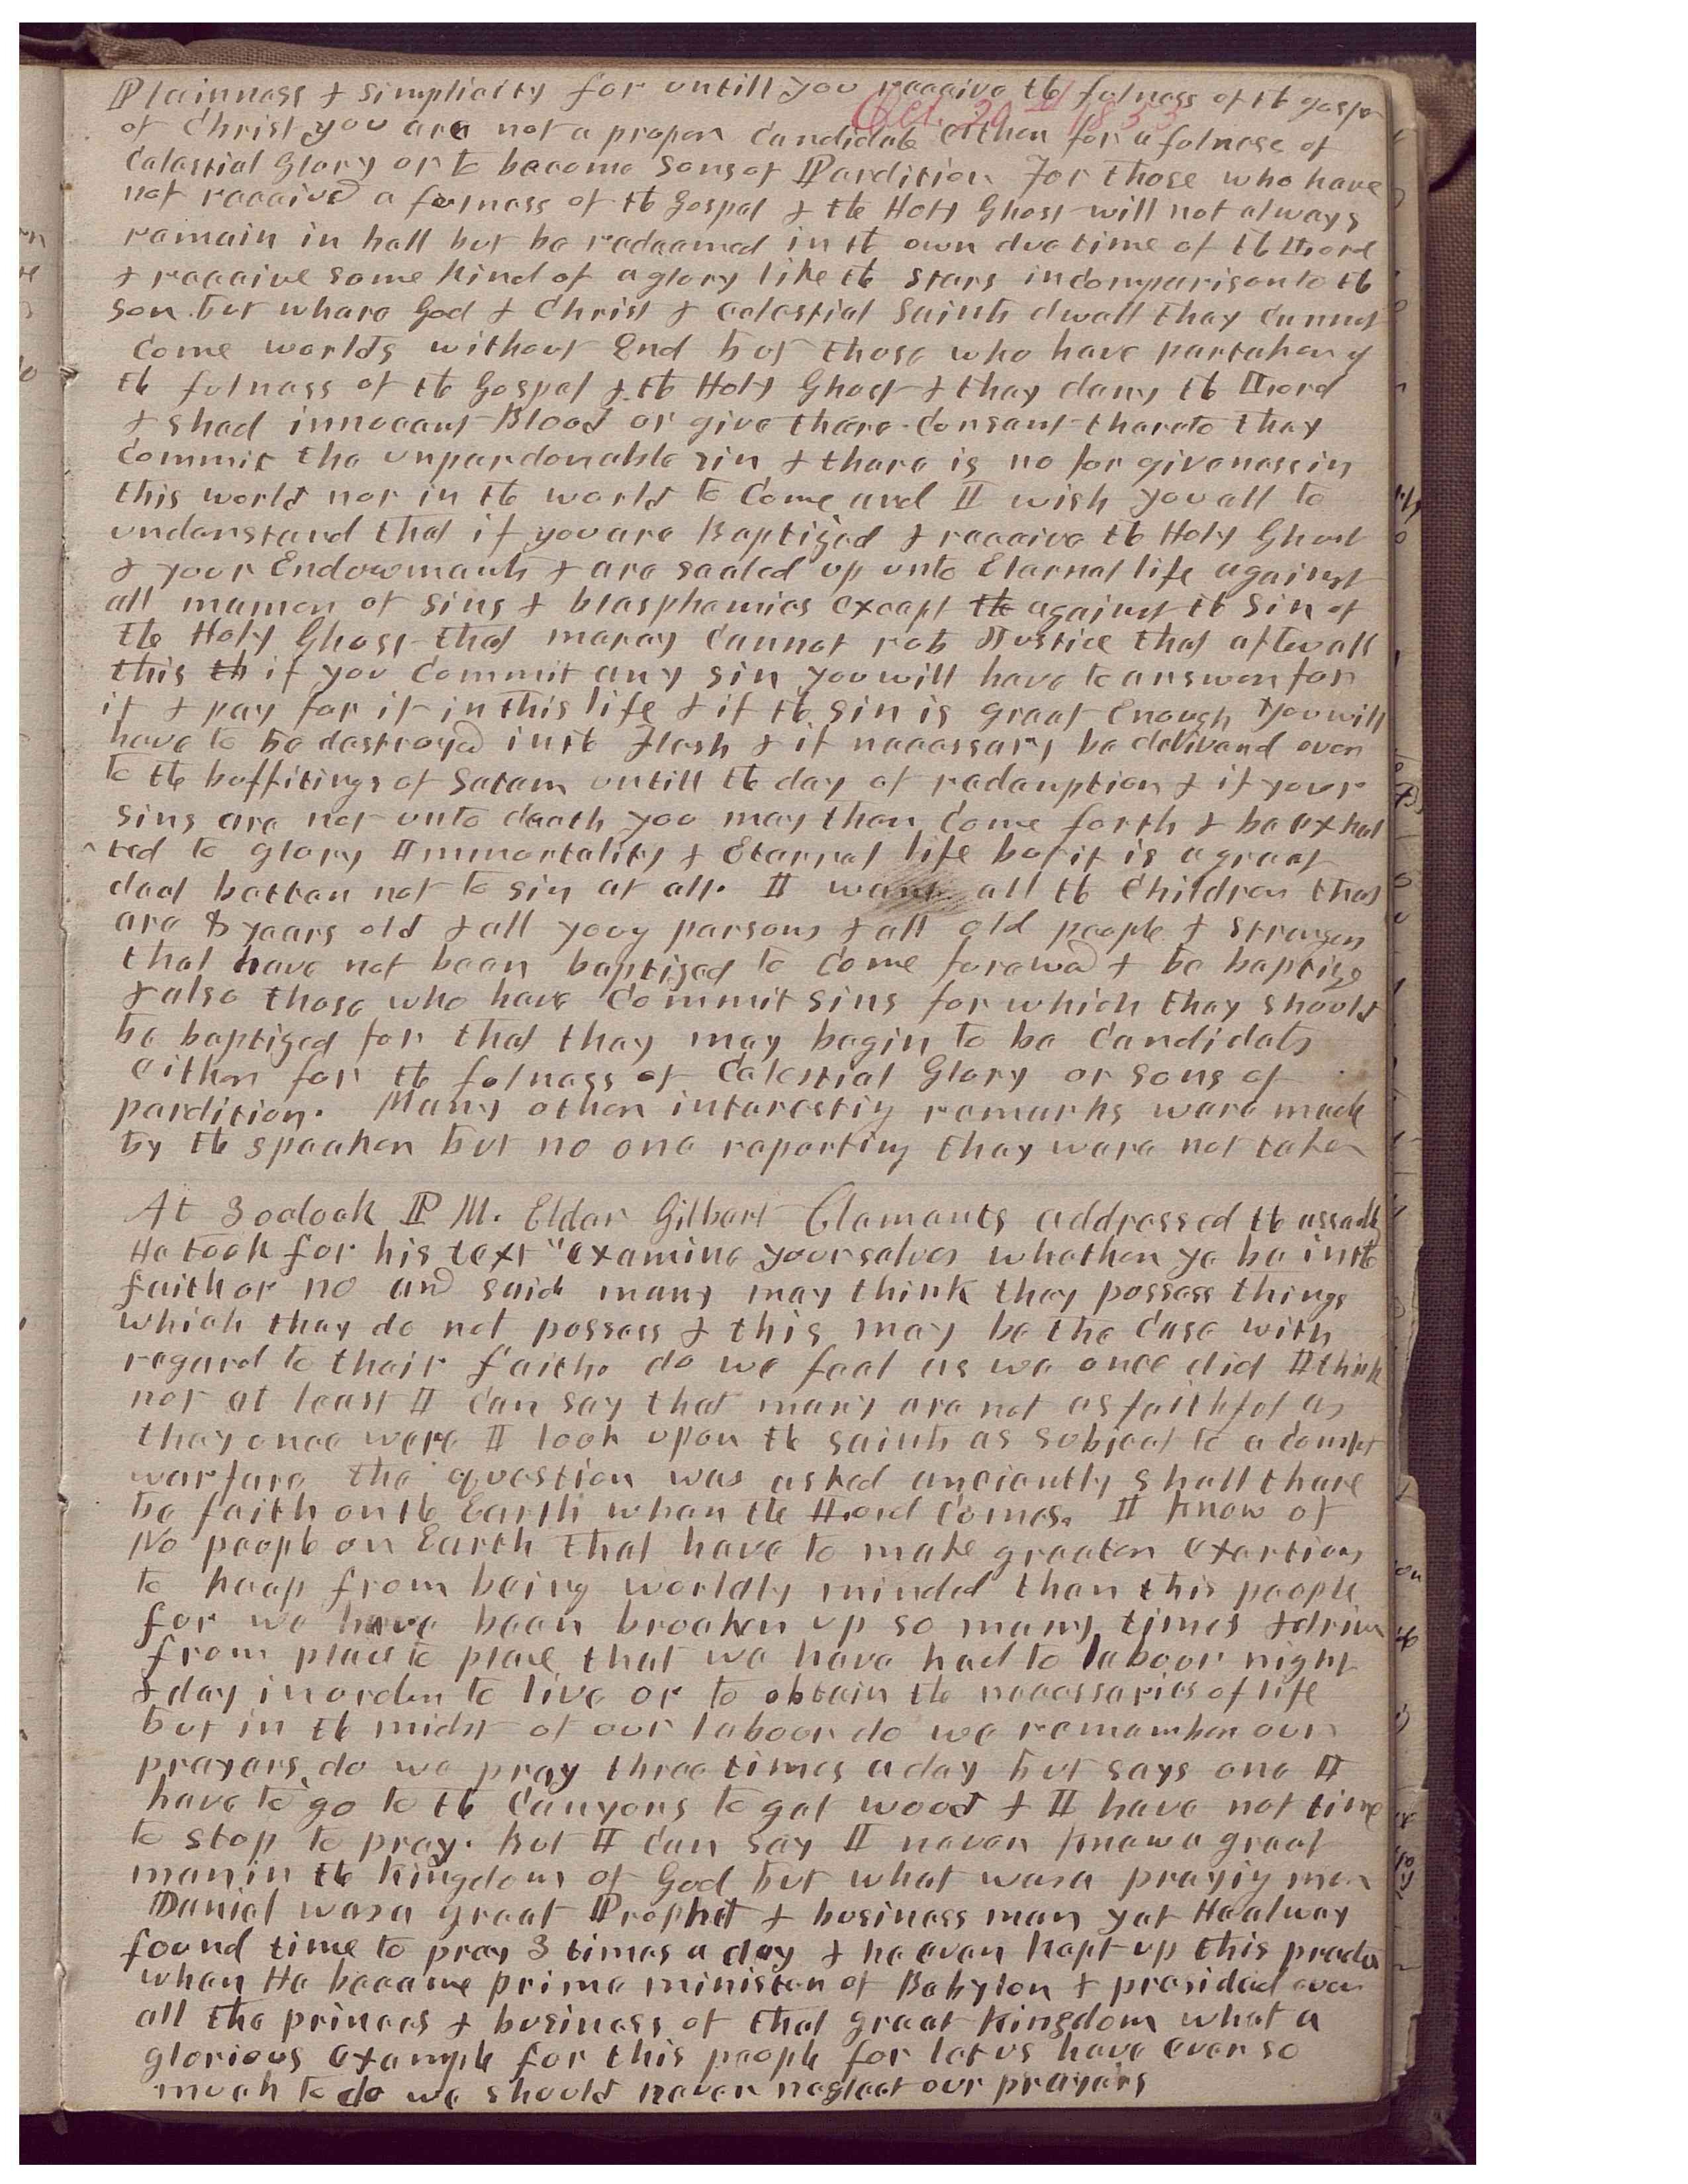 Plainness & simplicity for untill you receive the fulness of the gospe
Oct. 30th 1853
of Christ you are not a proper candidate either for a fulness of
Celestial Glory or to become Sons of Perdition For those who have
not received a fulness of the Gospel & the Holy Ghost will not always
remain in hell but be redeemed in the own due time of the Lord
& receive some kind of a glory like the stars in comparison to the
son but whare God & Christ & celestial Saints dwell they cannot
come worlds without End but those who have partaken of
the fulness of the Gospel & the Holy Ghost & they deny the Lord
& shed innocent Blood or give there consent thereto they
commit the unpardonable sin & there is no forgiveness in
this world nor in the world to Come and I wish you all to
understand that if you are Baptized & receive the Holy Ghost
& your Endowments & are sealed up unto Eternal life against
all manner of sins & blasphemies except the against the Sin of
the Holy Ghost that mercy cannot rob Justice that after all
this th if you commit any sin you will have to answer for
it & pay for it in this life & if the sin is great enough you will
have to be destroyed in the flesh & if necessary be delivered even
to the buffitings of Satan untill the day of redemption & if your
sins are not unto death you may then come forth & be exhal
ted to glory Immortality & Eternal life but it is a great
deal better not to sin at all. I want all the children that
are 8 years old & all young persons & all old people & strangers
that have not been baptized to come foreward & be baptize
& also those who have commit sins for which they should
be baptized for that they may begin to be candidats
either for the fulness of Celestial Glory or sons of
perdition. Many other interesting remarks were made
by the speaker but no one reporting they were not taken
At 3 oclock P M. Elder Gilbert Clements addressed the assembly
He took for his text "examine yourselves whether ye be in the
faith or no and said many may think they possess things
which they do not possess & this may be the case with
regard to their faith. do we feel as we once did I think
not at least I can say that many are not as faithful as
they once were I look upon the saints as subject to a constant
warfare the question was asked anciently shall there
be faith on the Earth when the Lord comes. I know of
No people on Earth that have to make greater exertions
to keep from being worldly minded than this people
for we have been broaken up so many times & driven
from place to place that we have had to labour night
& day in order to live or to obtain the necessaries of life
but in the midst of our labour do we remember our
prayers do we pray three times a day but says one I
have to go to the Canyons to get wood & I have not time
to stop to pray. But I can say I never knew a great
man in the kingdom of God but what was a praying man
Daniel was a great Prophet & business man yet He alway
found time to pray 3 times a day & he even kept up this practice
when He became prime minister of Babylon & presided over
all the princes & business of that great Kingdom what a
glorious example for this people for let us have ever so
much to do we should never neglect our prayers